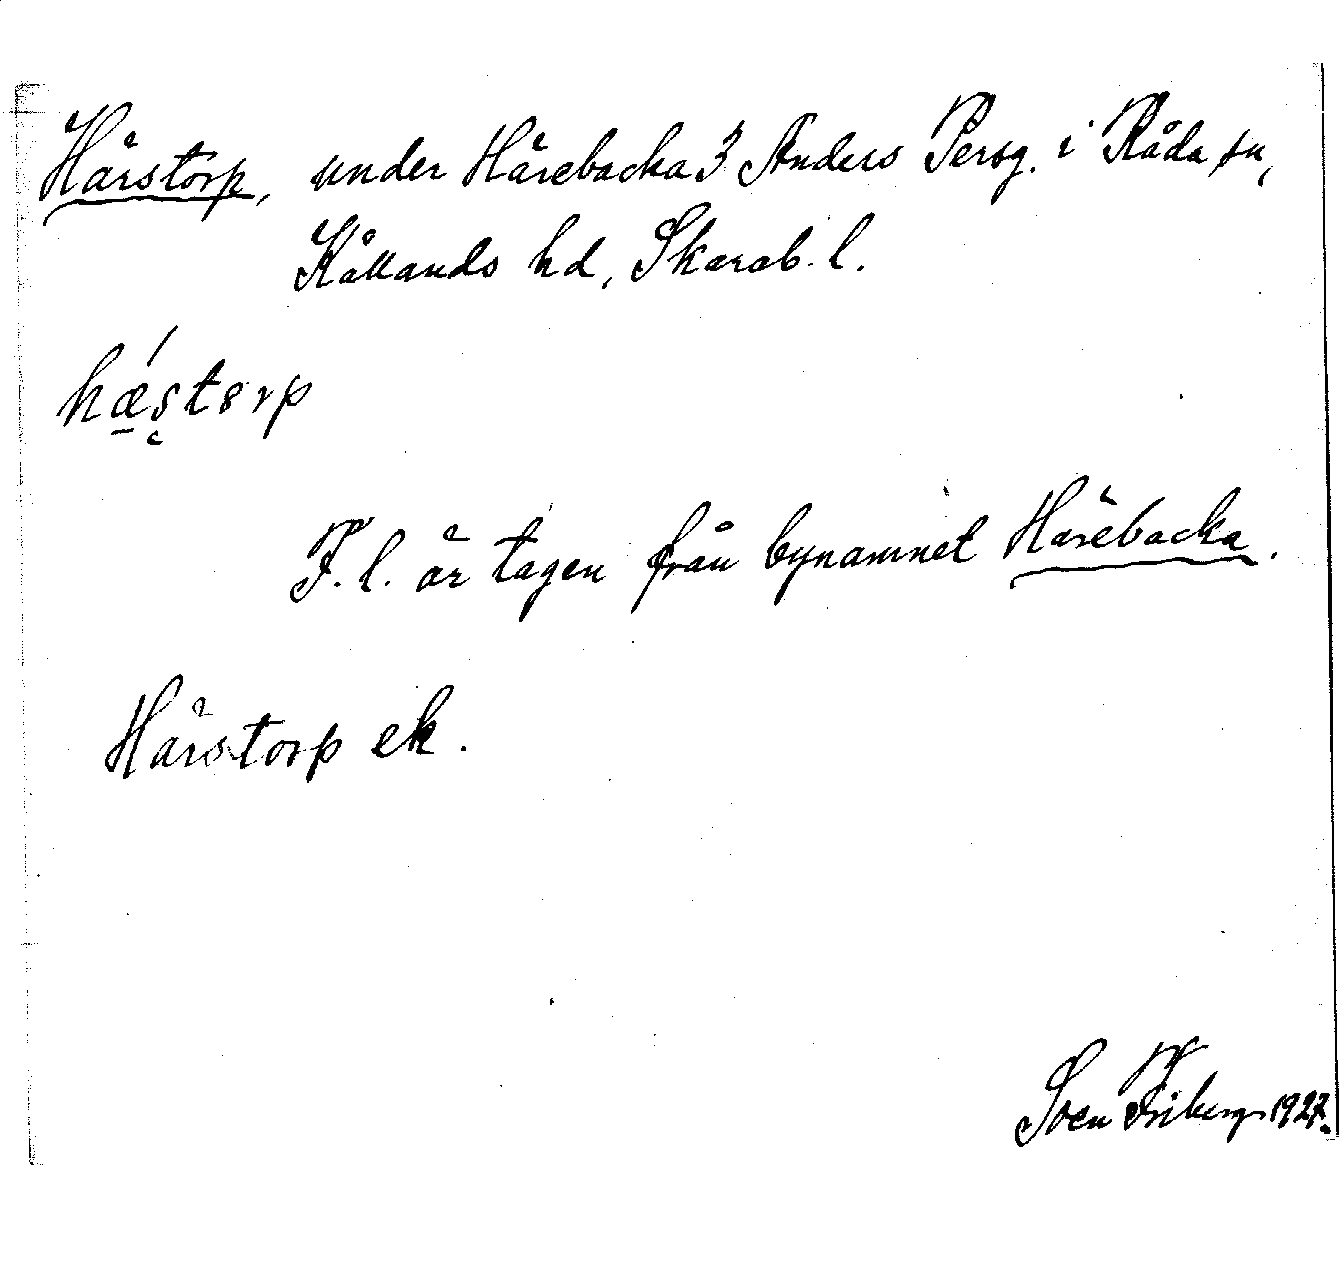 Härstorp, under Härebacka 3 Anders Persg. i Råda sn,
Kållands hd, Skarab. l.
hæ´s̨torp
F. l. är tagen från bynamnet Härebacka.
Härstorp ek.
Sven Friberg 1927.